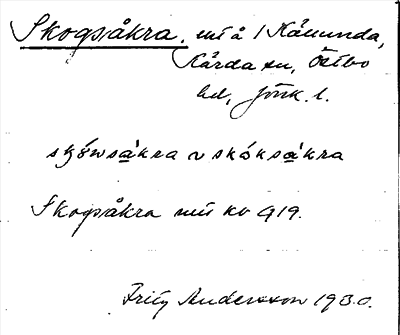 Skogsåkra. uns å / Kånunda,
Kårda sn, Östbo
hd, Jönk. l.
skówsåkra ~ skóksåkra
Skogsåkra uns kv 919.
Fritz Andersson 1930.